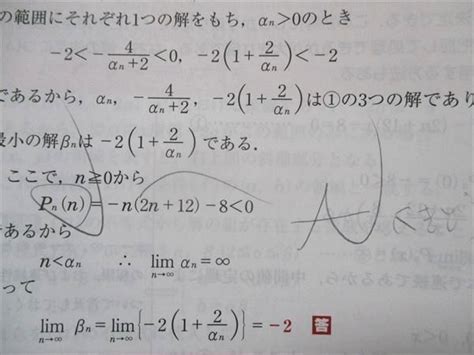 の範囲にそれぞれ1つの解をもち，αₙ>0のとき
-2<-4/(αₙ+2)<0, -2(1+2/αₙ)<-2
であるから，αₙ，-4/(αₙ+2)，-2(1+2/αₙ)は①の3つの解であり
最小の解βₙは -2(1+2/αₙ) である．
ここで，n≧0から
Pₙ(n)=-n(2n+12)-8<0
であるから
n<αₙ ∴ lim_{n→∞} αₙ=∞
って
lim_{n→∞} βₙ=lim_{n→∞}{-2(1+2/αₙ)}=-2 答